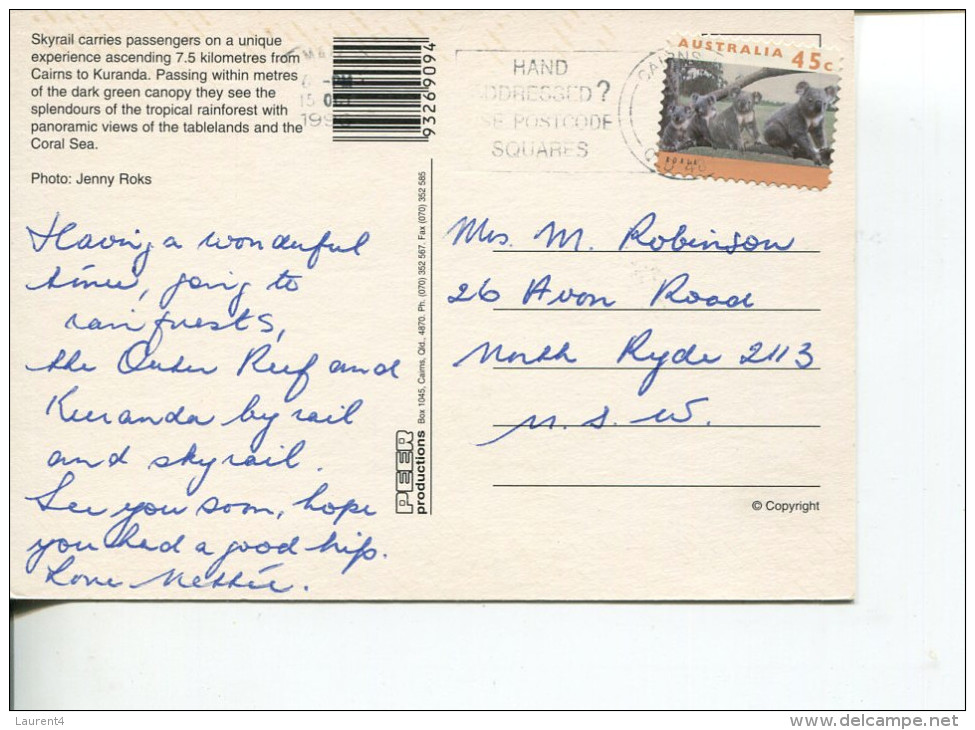 Skyrail carries passengers on a unique
experience ascending 7.5 kilometres from
Cairns to Kuranda. Passing within metres
of the dark green canopy they see the
splendours of the tropical rainforest with
panoramic views of the tablelands and the
Coral Sea.
Photo: Jenny Roks
93269094
15 OCT
HAND
ADDRESSED?
USE POSTCODE
SQUARES
CAIRNS
AUSTRALIA 45c
Having a wonderful
time, going to
rainforests,
the Outer Reef and
Kuranda by rail
and skyrail.
See you soon, hope
you had a good trip.
Love Nettie.
PEER
productions Box 1045, Cairns, Qld., 4870. Ph. (070) 352 567. Fax (070) 352 585
Mrs. M. Robinson
26 Avon Road
North Ryde 2113
N. S. W.
© Copyright
Laurent4
www.delcampe.net